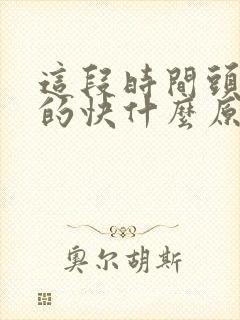 這段時間頭
的快什麼原
奧尔胡斯